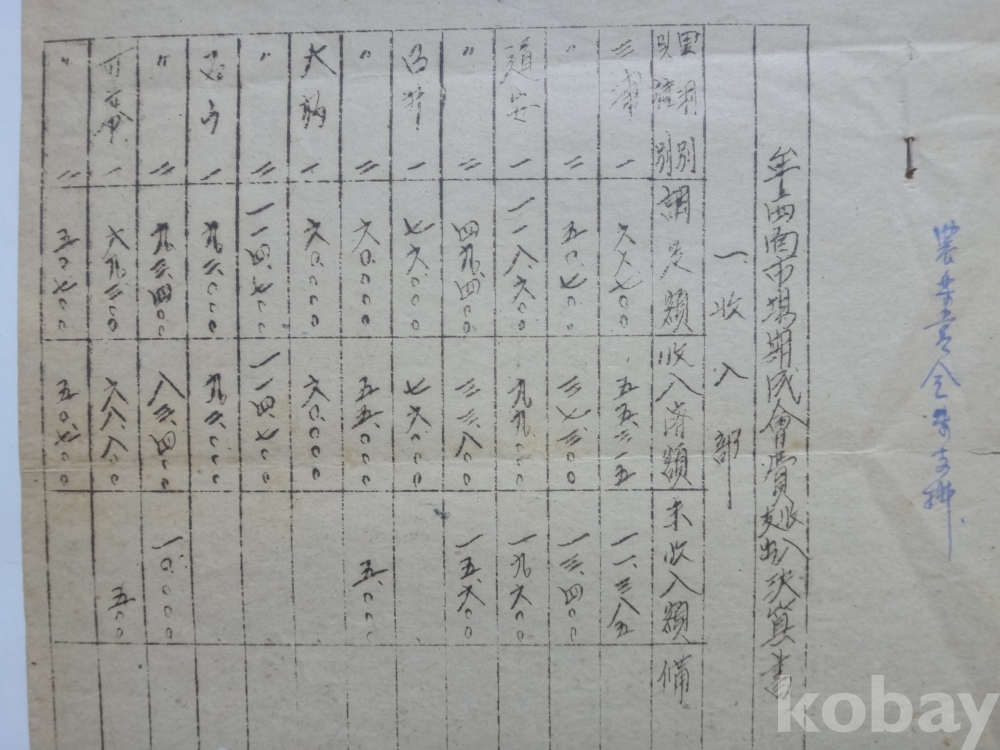 上四面市場期成會費收入支出決算書
一、收入部
里洞別 調定額 收入済額 未收入額 備
三浦 一 六六.七〇〇 五五.三一五 一一.三八五
〃 二 五〇.七〇〇 三七.三〇〇 一三.四〇〇
道安 一 一一八.六〇〇 九九.〇〇〇 一九.六〇〇
〃 二 四九.四〇〇 三三.八〇〇 一五.六〇〇
一 七六.〇〇〇 七六.〇〇〇
〃 二 六〇.〇〇〇 五五.〇〇〇 五.〇〇〇
大 一 六〇.〇〇〇 六〇.〇〇〇
〃 二 一一四.七〇〇 一一四.七〇〇
一 九三.〇〇〇 九三.〇〇〇
〃 二 九三.四〇〇 八三.四〇〇 一〇.〇〇〇
一 六九.三〇〇 六八.八〇〇 五〇〇
〃 二 五〇.七〇〇 五〇.七〇〇
kobay